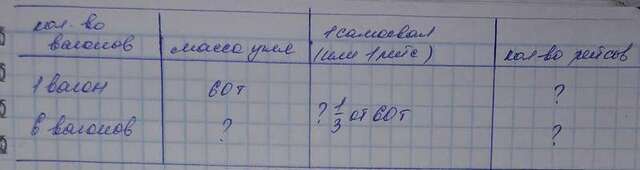 кол-во вагонов
масса угля
1 самосвал (или 1 рейс)
кол-во рейсов
1 вагон
60т
?
? 1/3 от 60т
6 вагонов
?
?